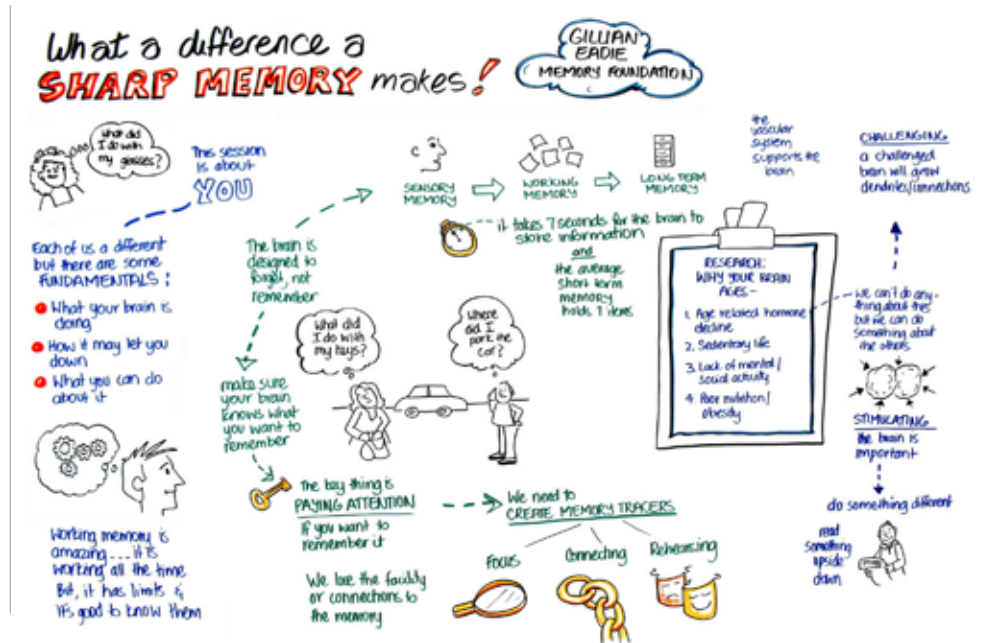 What a difference a
SHARP MEMORY makes!
GILLIAN
EADIE
MEMORY FOUNDATION
What did
I do with
my glasses?
This session
is about
YOU
Each of us a different
but there are some
FUNDAMENTALS:
What your brain is
doing
How it may let you
down
What you can do
about it
Working memory is
amazing... it is
working all the time
But, it has limits &
it's good to know them
The brain is
designed to
forget, not
remember
make sure
your brain
knows what
you want to
remember
SENSORY
MEMORY
WORKING
MEMORY
LONG TERM
MEMORY
it takes 7 seconds for the brain to
store information
and
the average
short term
memory
holds 7 items
What did
I do with
my keys?
Where
did I
park the
car?
The key thing is
PAYING ATTENTION
If you want to
remember it
We lose the facility
or connections to
the memory
We need to
CREATE MEMORY TRACERS
FOCUS
Connecting
Rehearsing
the
vascular
system
supports the
brain
RESEARCH:
WHY YOUR BRAIN
AGES-
1. Age related hormone
decline
2. Sedentary life
3. Lack of mental/
social activity
4. Poor nutrition/
obesity
CHALLENGING
a challenged
brain will grow
dendrites/connections
we can't do any-
thing about this
but we can do
something about
the others
STIMULATING
the brain is
important
do something different
read
something
upside
down